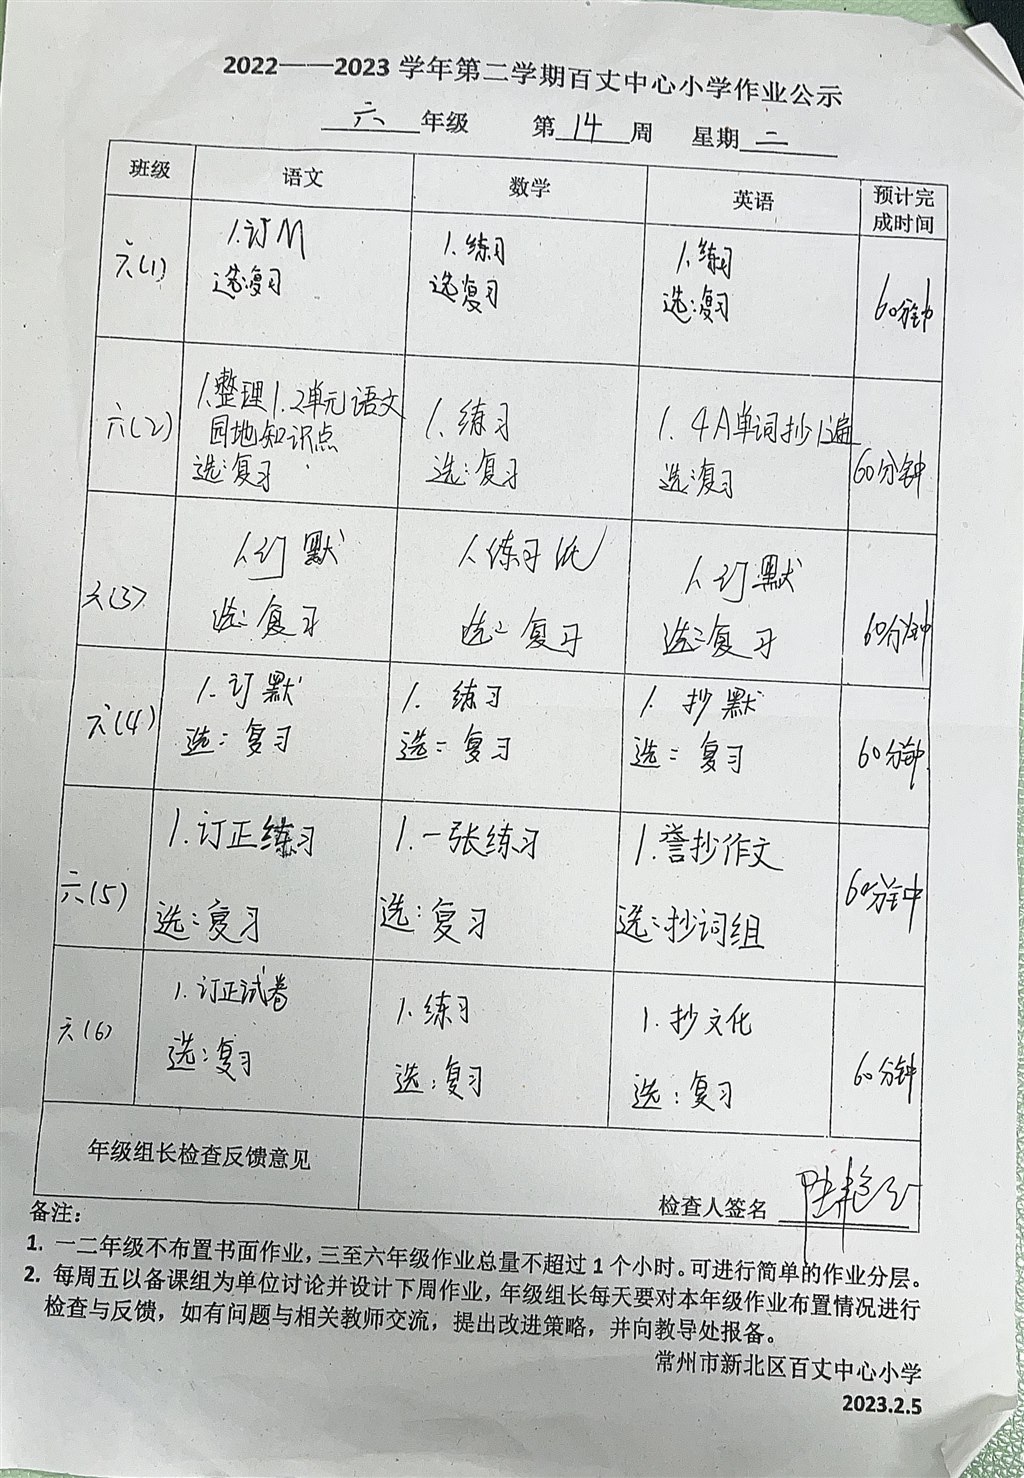 2022——2023 学年第二学期百丈中心小学作业公示
六 年级 第 14 周 星期 二
班级 语文 数学 英语 预计完成时间
六(1)
1.订M
选:复习
1.练习
选:复习
1.练习
选:复习
60分钟
六(2)
1.整理1.2单元语文
园地知识点
选:复习
1.练习
选:复习
1.4A单词抄1遍
选:复习
60分钟
六(3)
1.订默
选:复习
1.练习
选:复习
1.订默
选:复习
60分钟
六(4)
1.订默
选:复习
1.练习
选:复习
1.抄默
选:复习
60分钟
六(5)
1.订正练习
选:复习
1.一张练习
选:复习
1.誊抄作文
选:抄词组
60分钟
六(6)
1.订正试卷
选:复习
1.练习
选:复习
1.抄文化
选:复习
60分钟
年级组长检查反馈意见
检查人签名
备注:
1. 一二年级不布置书面作业,三至六年级作业总量不超过 1 个小时。可进行简单的作业分层。
2. 每周五以备课组为单位讨论并设计下周作业,年级组长每天要对本年级作业布置情况进行
检查与反馈,如有问题与相关教师交流,提出改进策略,并向教导处报备。
常州市新北区百丈中心小学
2023.2.5